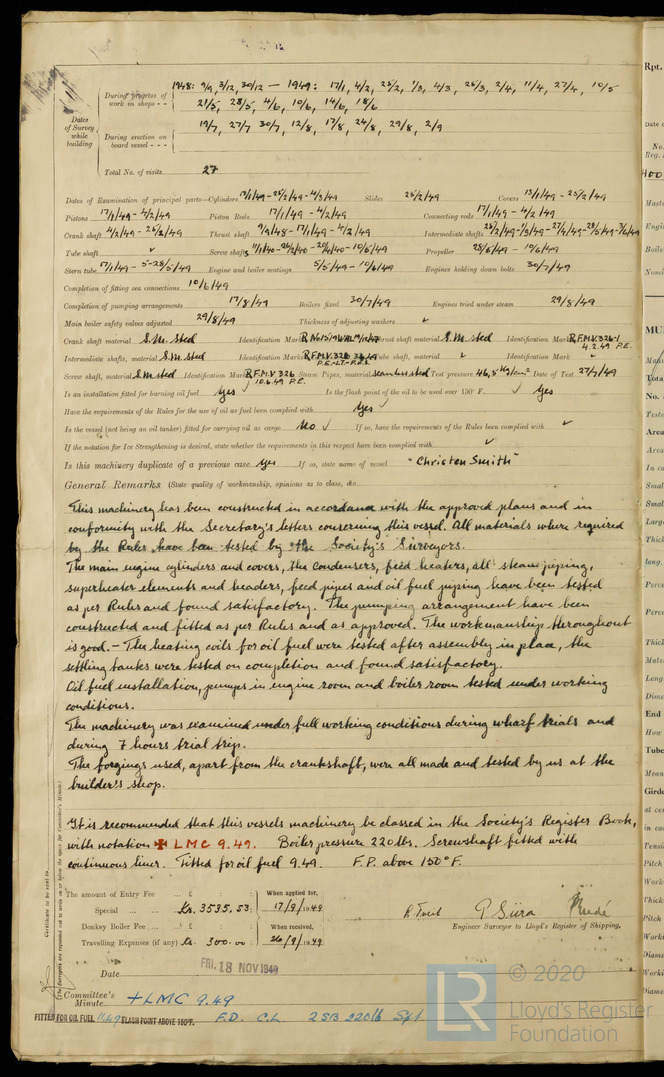 1948: 9/9, 3/12, 30/12 — 1949: 17/1, 4/2, 25/2, 1/3, 4/3, 26/3, 2/4, 11/4, 27/4, 10/5
During progress of work in shops - -
21/5, 28/5, 4/6, 10/6, 14/6, 18/6
Dates of Survey while building
During erection on board vessel - - -
19/7, 27/7 30/7, 12/8, 17/8, 24/8, 29/8, 2/9
Total No. of visits 27
Dates of Examination of principal parts—Cylinders 17/1/49-25/2/49-4/3/49 Slides 25/2/49 Covers 13/1/49-25/2/49
Pistons 17/1/49-4/2/49 Piston Rods 17/1/49-4/2/49 Connecting rods 17/1/49-4/2/49
Crank shaft 4/2/49-26/3/49 Thrust shaft 9/9/48-17/1/49-4/2/49 Intermediate shafts
Tube shaft ✓ Screw shaft Propeller 28/5/49-10/6/49
Stern tube 17/1/49-5-28/5/49 Engine and boiler seatings 5/5/49-10/6/49 Engines holding down bolts 30/7/49
Completion of fitting sea connections 10/6/49
Completion of pumping arrangements 17/8/49 Boilers fixed 30/7/49 Engines tried under steam 29/8/49
Main boiler safety valves adjusted 29/8/49 Thickness of adjusting washers ✓
Crank shaft material S.M. steel Identification Mark Thrust shaft material S.M. steel Identification Mark R.F.M.V.326-1
4.2.49 P.E.
Intermediate shafts, material S.M. steel Identification Marks R.F.M.V. 326 Tube shaft, material ✓ Identification Mark ✓
Screw shaft, material S.M. steel Identification Mark R.F.M.V 326 Steam Pipes, material seamless steel Test pressure 46,5 kg/cm² Date of Test 27/7/49
10.6.49 P.E.
Is an installation fitted for burning oil fuel Yes ✓ Is the flash point of the oil to be used over 150° F. ✓ Yes
Have the requirements of the Rules for the use of oil as fuel been complied with Yes ✓
Is the vessel (not being an oil tanker) fitted for carrying oil as cargo No ✓ If so, have the requirements of the Rules been complied with ✓
If the notation for Ice Strengthening is desired, state whether the requirements in this respect have been complied with ✓
Is this machinery duplicate of a previous case Yes If so, state name of vessel "Christen Smith"
General Remarks (State quality of workmanship, opinions as to class, &c.
This machinery has been constructed in accordance with the approved plans and in
conformity with the Secretary's letters concerning this vessel. All materials where required
by the Rules have been tested by the Society's Surveyors.
The main engine cylinders and covers, the condensers, feed heaters, all steam piping,
superheater elements and headers, feed pipes and oil fuel piping have been tested
as per Rules and found satisfactory. The pumping arrangement have been
constructed and fitted as per Rules and as approved. The workmanship throughout
is good. - The heating coils for oil fuel were tested after assembly in place, the
settling tanks were tested on completion and found satisfactory.
Oil fuel installation, pumps in engine room and boiler room tested under working
conditions.
The machinery was examined under full working conditions during wharf trials and
during 7 hours trial trip.
The forgings used, apart from the crankshaft, were all made and tested by us at the
builder's shop.
It is recommended that this vessels machinery be classed in the Society's Register Book,
with notation ✠ LMC 9.49. Boiler pressure 220 lbs. Screwshaft fitted with
continuous liner. Fitted for oil fuel 9.49. F.P. above 150°F.
The amount of Entry Fee ... £ : : When applied for,
Special ... ... Kr. 3535.53 17/9/1949
Donkey Boiler Fee ... £ : : When received,
Travelling Expenses (if any) Kr. 300.00 26/9/1949
Engineer Surveyor to Lloyd's Register of Shipping.
Date FRI. 18 NOV 1949
Committee's Minute + LMC 9.49
FITTED FOR OIL FUEL 11.49 FLASH POINT ABOVE 150°F. F.D. C.L. 2 SB 220 lb Spt
© 2020
LR
Lloyd's Register
Foundation